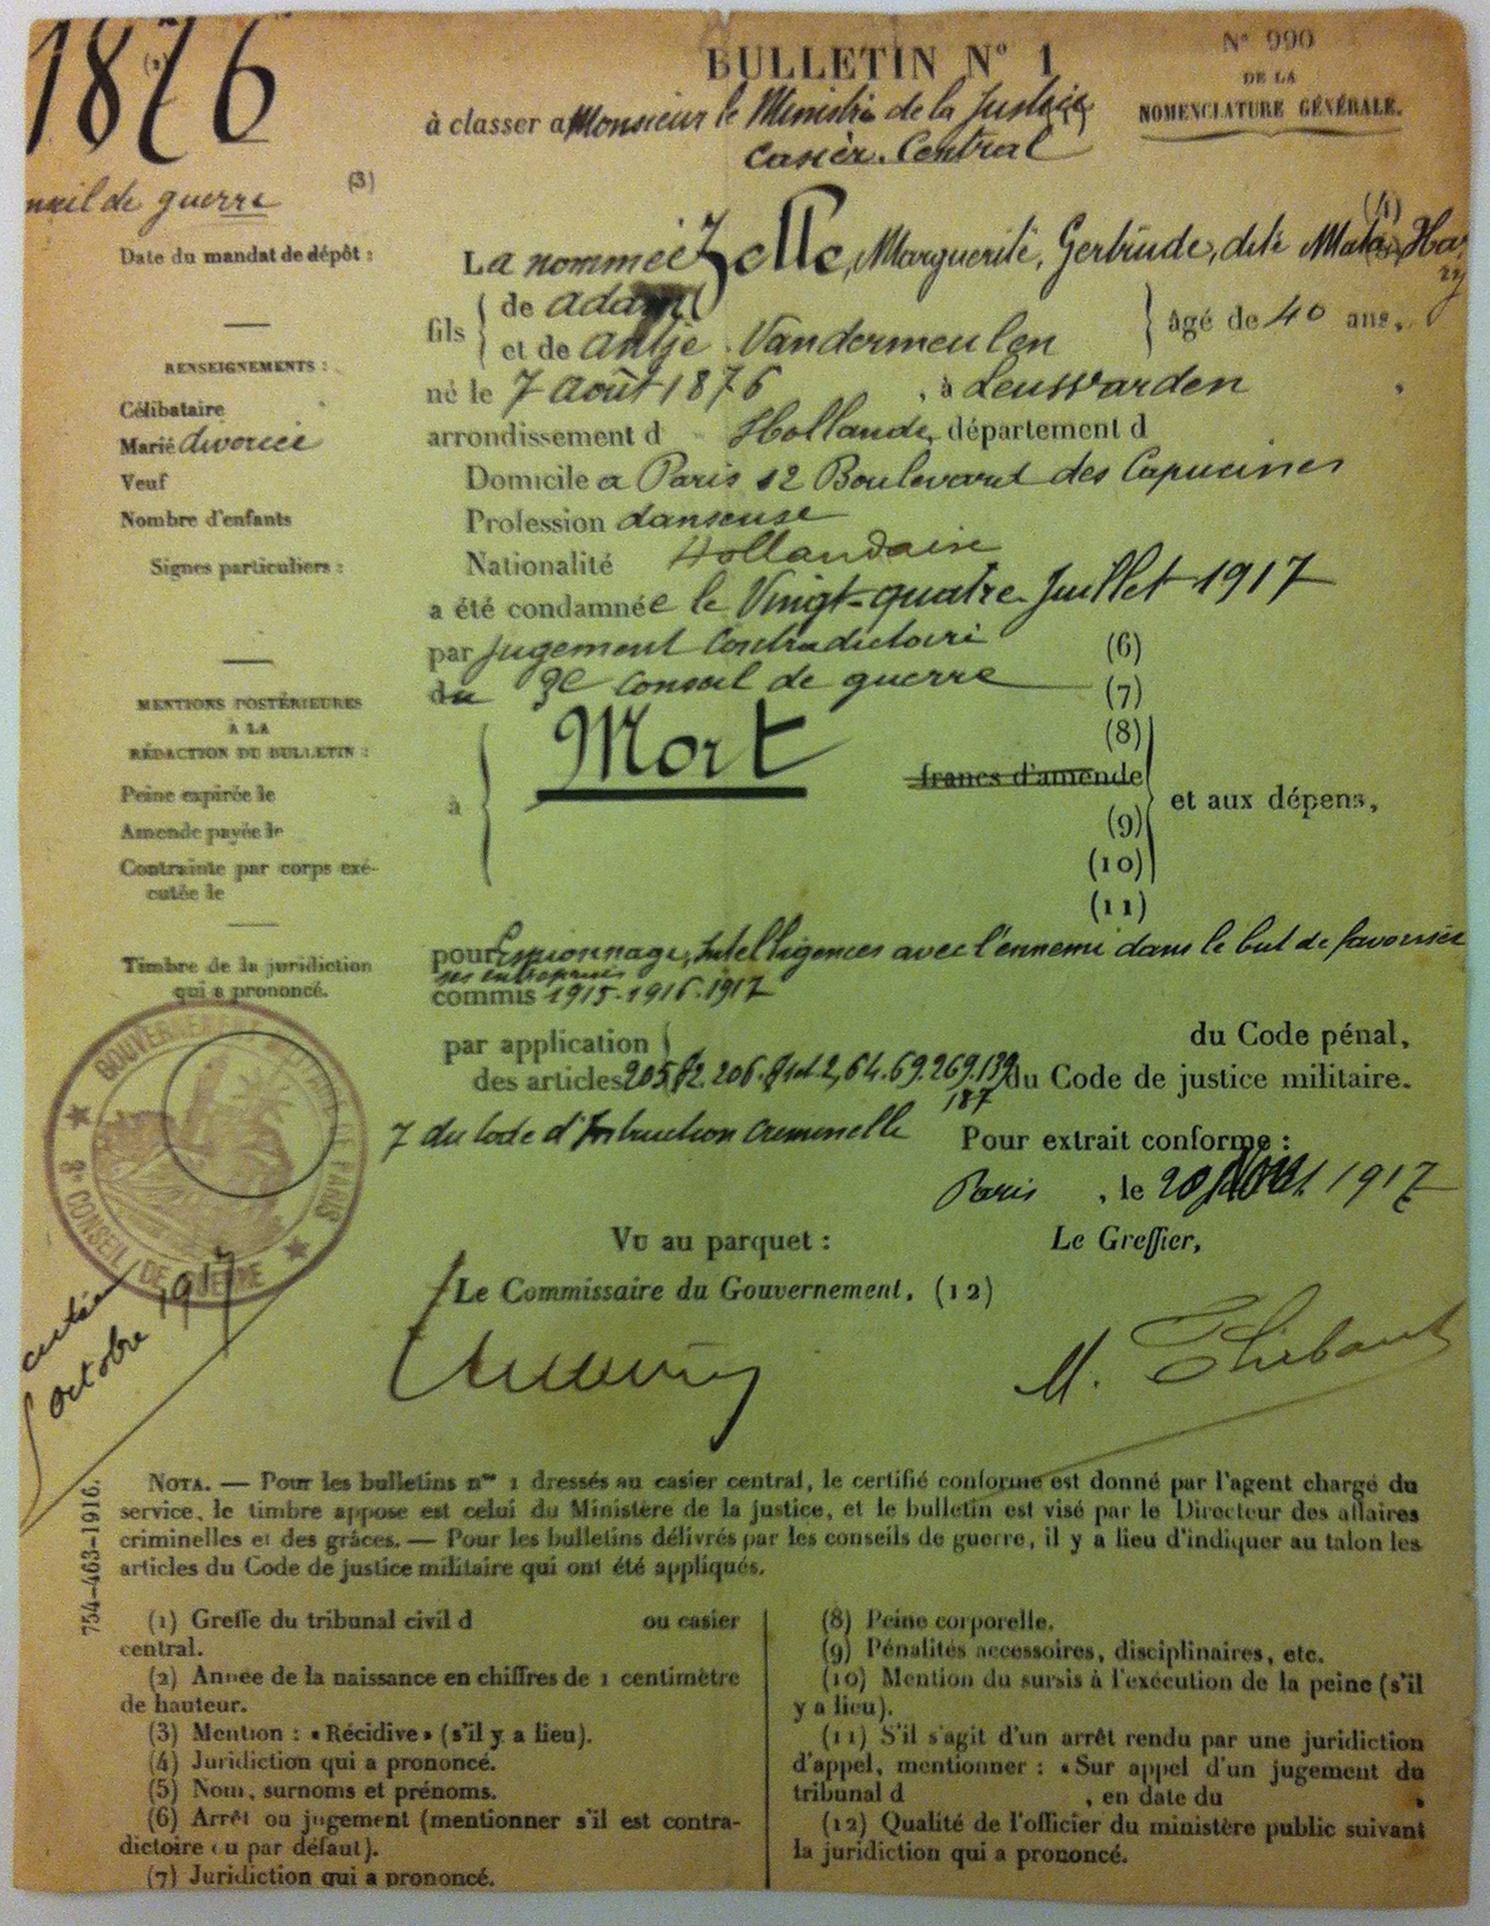 1876
(2)
BULLETIN N° 1
N° 990
DE LA
NOMENCLATURE GÉNÉRALE.
à classer a Monsieur le Ministre de la Justice (1)
Casier Central
de guerre
(3)
(4)
Date du mandat de dépôt :
La nommée Zelle, Marguerite, Gertrude, dite Mata Hary
fils
de Adam
et de Antje Vandermeulen
âgé de 40 ans,
né le 7 Août 1876, à Leuswarden
arrondissement d Hollande, département d
Domicile a Paris 12 Boulevard des Capucines
Profession danseuse
Nationalité Hollandaise
RENSEIGNEMENTS :
Célibataire
Marié divorcée
Veuf
Nombre d'enfants
Signes particuliers :
a été condamnée le Vingt-quatre Juillet 1917
par jugement Contradictoire (6)
du 3e Conseil de guerre (7)
à
Mort
(8)
francs d'amende
(9)
(10)
et aux dépens,
(11)
MENTIONS POSTÉRIEURES
À LA
RÉDACTION DU BULLETIN :
Peine expirée le
Amende payée le
Contrainte par corps exé-
cutée le
Timbre de la juridiction
qui a prononcé.
pour Espionnage, Intelligences avec l'ennemi dans le but de favoriser
ses entreprises
commis 1915-1916-1917
par application
des articles
du Code pénal,
205 § 2. 206. § 1 et 2, 64. 69. 269. 139 du Code de justice militaire.
187
7 du Code d'Instruction Criminelle
Pour extrait conforme :
Paris, le 20 1917
Vu au parquet :
Le Commissaire du Gouvernement, (12)
Le Greffier,
M. Thibaut
GOUVERNEMENT MILITAIRE DE PARIS
3e CONSEIL DE GUERRE
octobre 1917
754-463-1916.
NOTA. — Pour les bulletins nos 1 dressés au casier central, le certifié conforme est donné par l'agent chargé du
service, le timbre apposé est celui du Ministère de la justice, et le bulletin est visé par le Directeur des affaires
criminelles et des grâces. — Pour les bulletins délivrés par les conseils de guerre, il y a lieu d'indiquer au talon les
articles du Code de justice militaire qui ont été appliqués.
(1) Greffe du tribunal civil d ou casier
central.
(2) Année de la naissance en chiffres de 1 centimètre
de hauteur.
(3) Mention : « Récidive » (s'il y a lieu).
(4) Juridiction qui a prononcé.
(5) Nom, surnoms et prénoms.
(6) Arrêt ou jugement (mentionner s'il est contra-
dictoire ou par défaut).
(7) Juridiction qui a prononcé.
(8) Peine corporelle.
(9) Pénalités accessoires, disciplinaires, etc.
(10) Mention du sursis à l'exécution de la peine (s'il
y a lieu).
(11) S'il s'agit d'un arrêt rendu par une juridiction
d'appel, mentionner : « Sur appel d'un jugement du
tribunal d , en date du »
(12) Qualité de l'officier du ministère public suivant
la juridiction qui a prononcé.